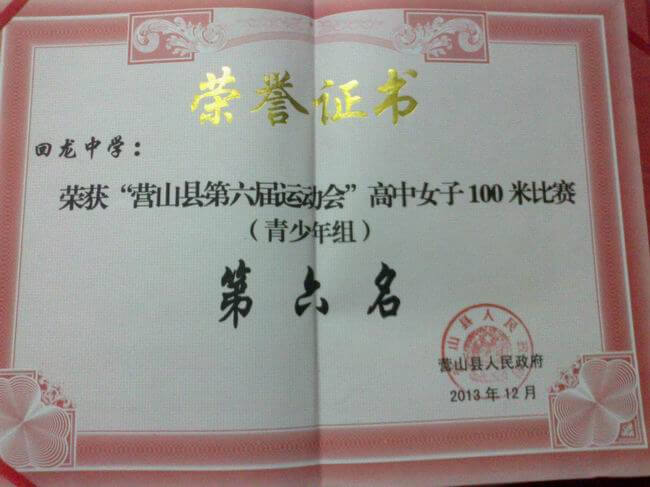 荣誉证书
回龙中学：
荣获“营山县第六届运动会”高中女子100米比赛
（青少年组）
第六名
营山县人民政府
营山县人民政府
2013年12月